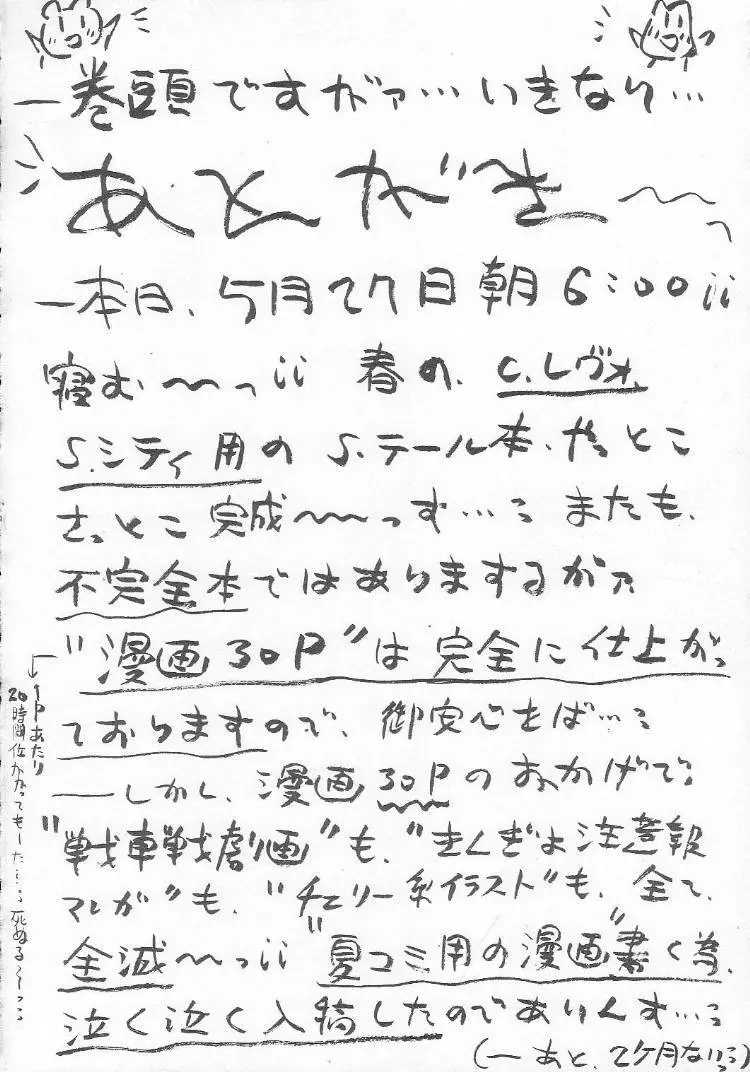 一巻頭ですがァ…いきなり…
あとがき〜〜っ
一本日、5月27日朝6:00¡¡
寝む〜〜っ¡¡ 春の、C.レヴォ、
S.シティ用のS.テール本、やっとこ
さっとこ完成〜〜〜っす…：またも、
不完全本ではありまするがァ
"漫画30P"は完全に仕上がっ
ておりますので、御安心をば…：
―しかし、漫画30Pのおかげで：
"戦車戦劇画"も、"きんぎょ注意報
マンガ"も、"チェリー系イラスト"も、全て、
全滅〜〜っ¡¡ "夏コミ用の漫画"書く為、
泣く泣く入稿したのでありんす…：
(―あと、2ケ月ないっ：)
←1Pあたり
20時間位かかってもーた…：死ぬる〜っ：